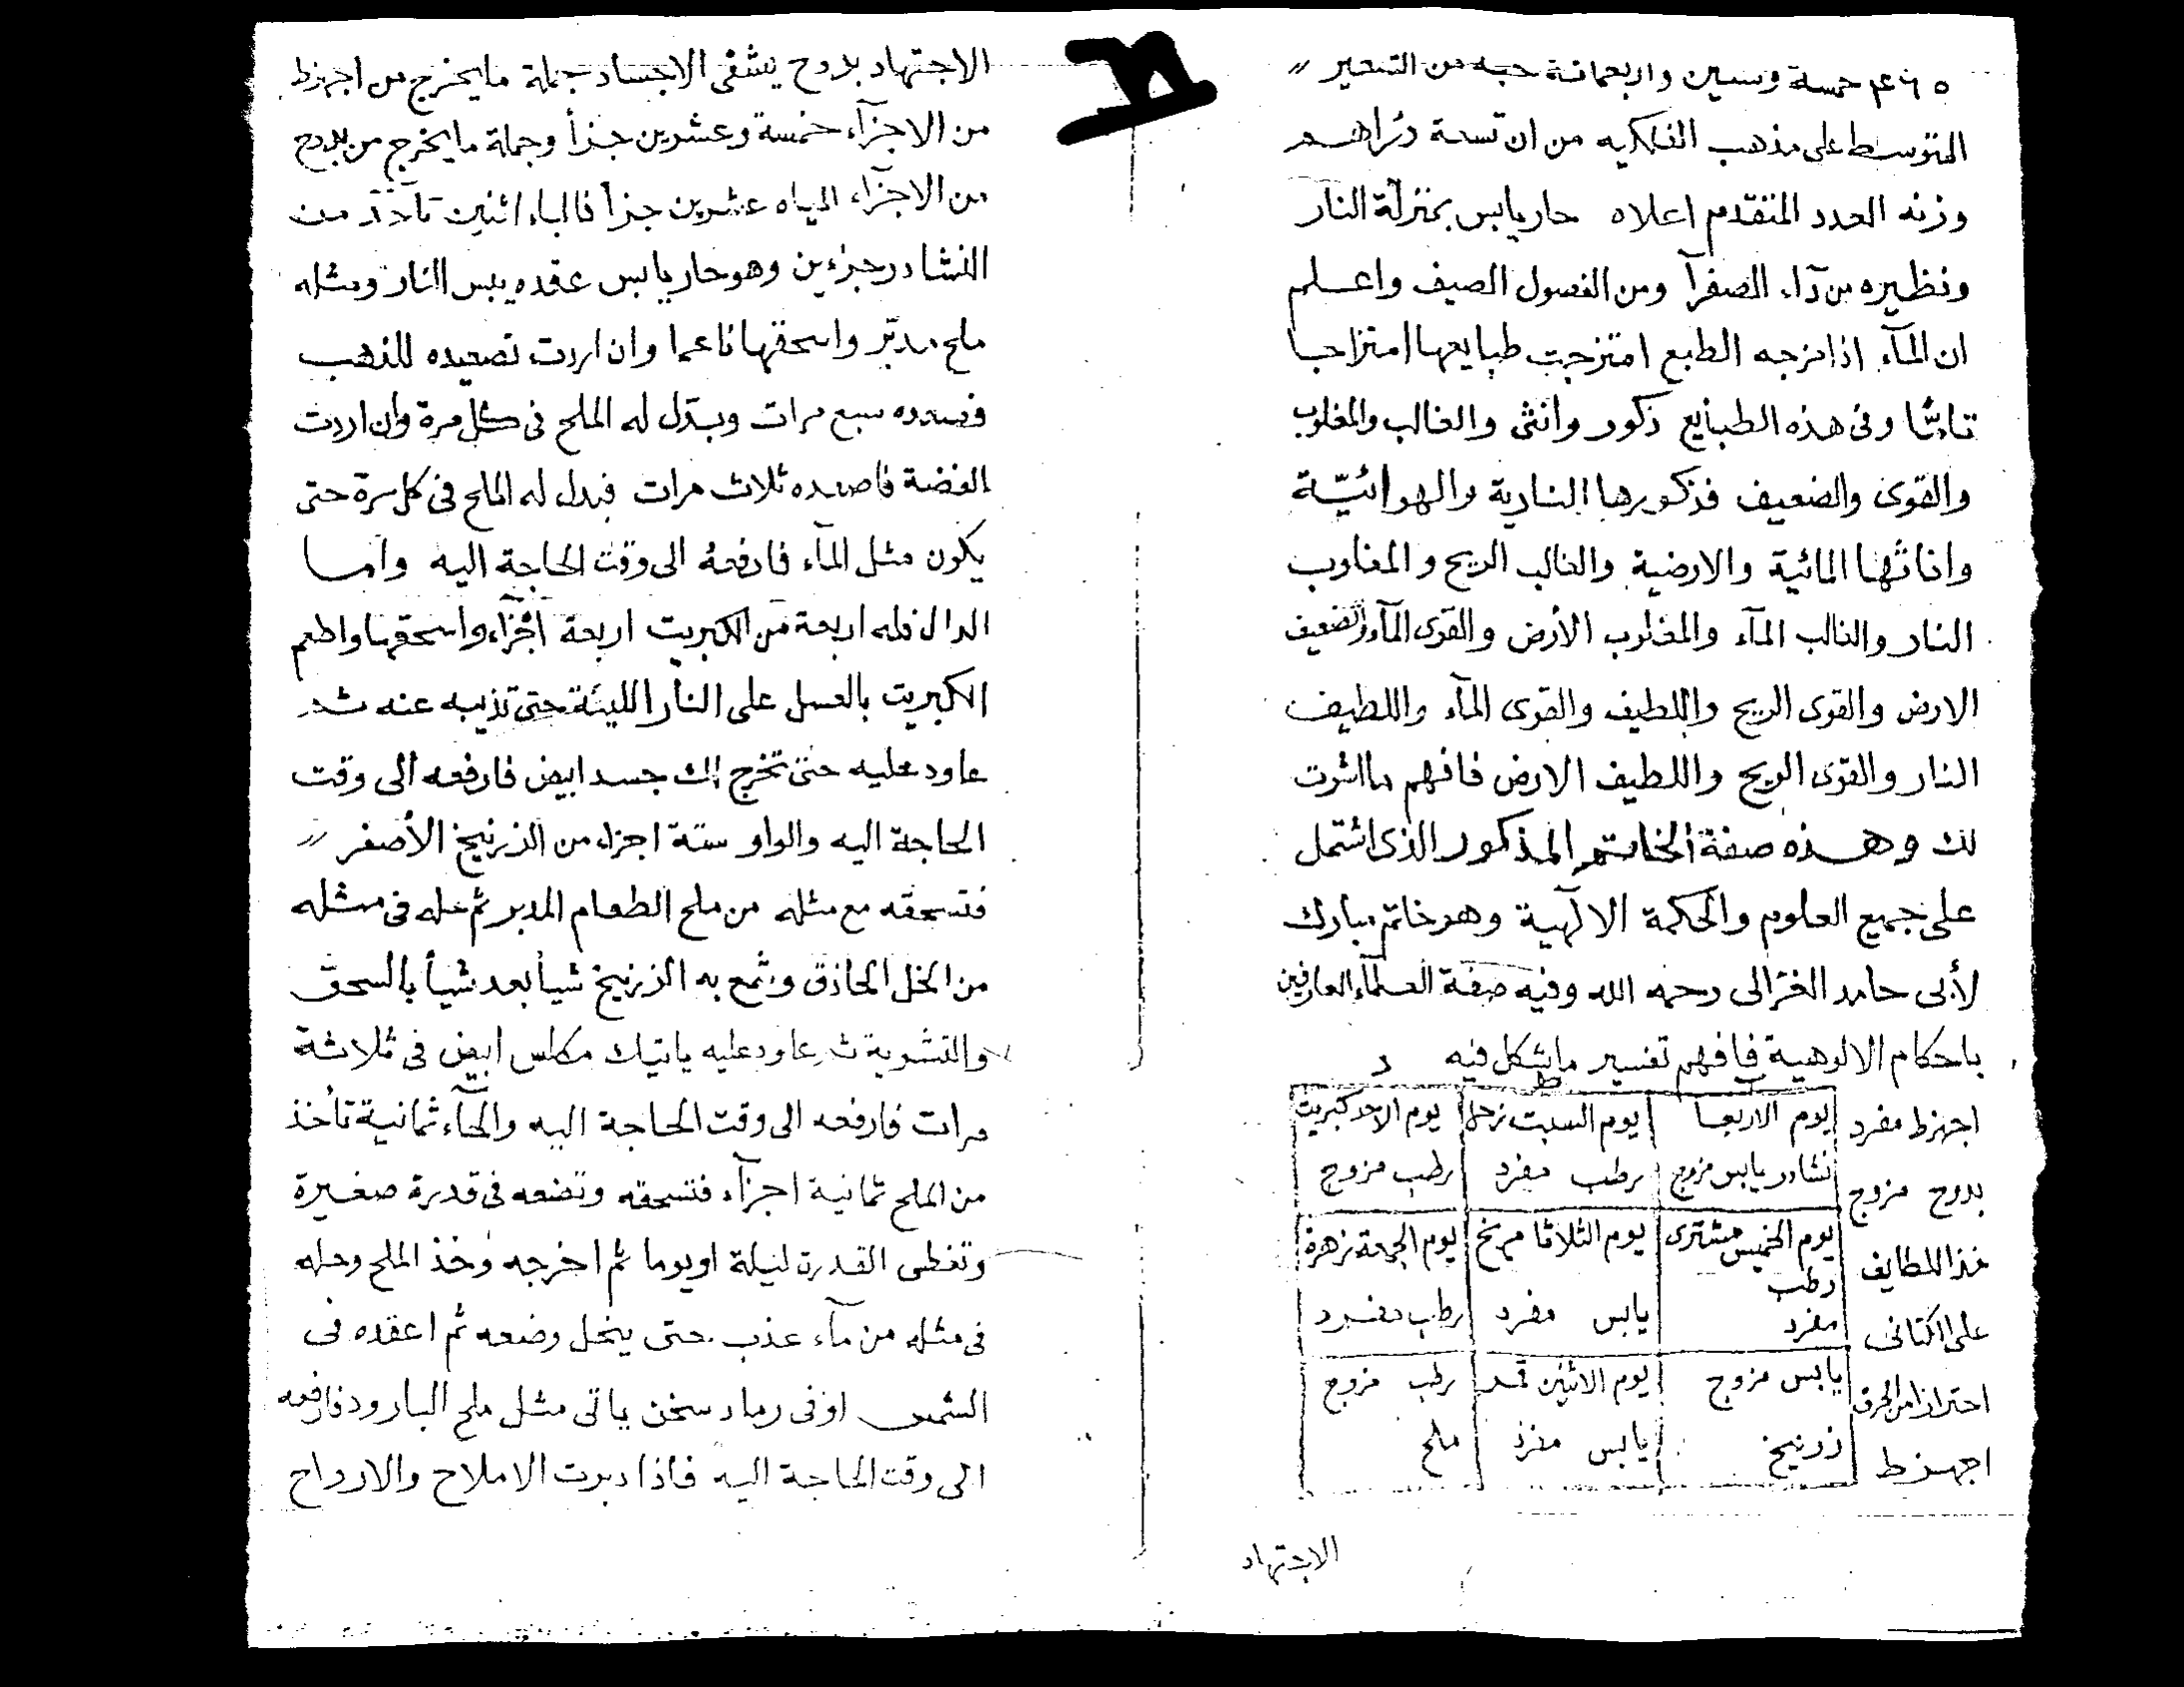 ٤٦٥ خمسة وستين واربعمائة حبه من الشعير
المتوسط على مذهب الفلكيه من ان تسعة دراهم
وزنه العدد المتقدم اعلاه حار يابس بمنزلة النار
ونظيره من دآء الصفرآ ومن الفصول الصيف واعلم
ان المآء اذا مزجه الطبع امتزجت طبايعها امتزاجا
تامًّا وفى هذه الطبايع ذكور وانثى والغالب والمغلوب
والقوى والضعيف فذكورها النارية والهوائيّة
واناثها المائية والارضية والغالب الريح والمغلوب
النار والغالب المآء والمغلوب الأرض والقوى المآء والضعيف
الارض والقوى الريح واللطيف والقوى المآء واللطيف
النار والقوى الريح واللطيف الارض فافهم ما اشرت
لك وهذه صفة الخاتم المذكور الذى اشتمل
على جميع العلوم والحكمة الالهية وهو خاتم مبارك
لأبى حامد الغزالى رحمه الله وفيه صفة العلمآء العارفين
باحكام الالوهية فافهم تفسير ما يشكل فيه
د
ط
اجهزط مفرد
بدوح مزوج
خذ اللطايف
على اكتافى
احترازا من الحرق
اجهزط
يوم الاربعا
نشادر يابس مزوج
يوم السبت زحل
رطب مفرد
يوم الاحد كبريت
رطب مزوج
يوم الخميس مشترى
رطب
مفرد
يوم الثلاثا مريخ
يابس مفرد
يوم الجمعة زهرة
رطب مفرد
يابس مزوج
زرنيخ
يوم الاثنين قمر
يابس مفرد
رطب مزوج
ملح
الاجتهاد
الاجتهاد بدوح يشفى الاجساد جملة ما يخرج من اجهزط
من الاجزآء خمسة وعشرين جزأ وجملة ما يخرج من بدوح
من الاجزآء المياه عشرين جزأ فالباء اثنين تأخذ من
النشادر جزءين وهو حار يابس عقده يبس النار ومثله
ملح مدبّر واسحقها ناعما وان اردت تصعيده للذهب
فصعده سبع مرات وبدّل له الملح فى كل مرة وان اردت
الفضة فاصعده ثلاث مرات فبدل له الملح فى كل مرة حتى
يكون مثل المآء فارفعه الى وقت الحاجة اليه واما
الدال فله اربعة من الكبريت اربعة اجزآء واسحقها واطعم
الكبريت بالعسل على النار اللينة حتى تذيبه عنه ثم
عاود عليه حتى تخرج لك جسد ابيض فارفعه الى وقت
الحاجة اليه والواو ستة اجزاء من الزرنيخ الأصفر
فتسحقه مع مثله من ملح الطعام المدبر ثم حله فى مثله
من الخل الحاذق وشمع به الزرنيخ شيأ بعد شيأ بالسحق
والتشوية ثم عاود عليه ياتيك مكلس ابيض فى ثلاثة
مرات فارفعه الى وقت الحاجة اليه والحآء ثمانية تأخذ
من الملح ثمانية اجزآء فتسحقه وتضعه فى قدرة صغيرة
وتغطى القدرة ليلة او يوما ثم اخرجه وخذ الملح وحله
فى مثله من مآء عذب حتى ينحل وضعه ثم اعقده فى
الشمس او فى رماد سخن ياتى مثل ملح البارود فارفعه
الى وقت الحاجة اليه فاذا دبرت الاملاح والارواح